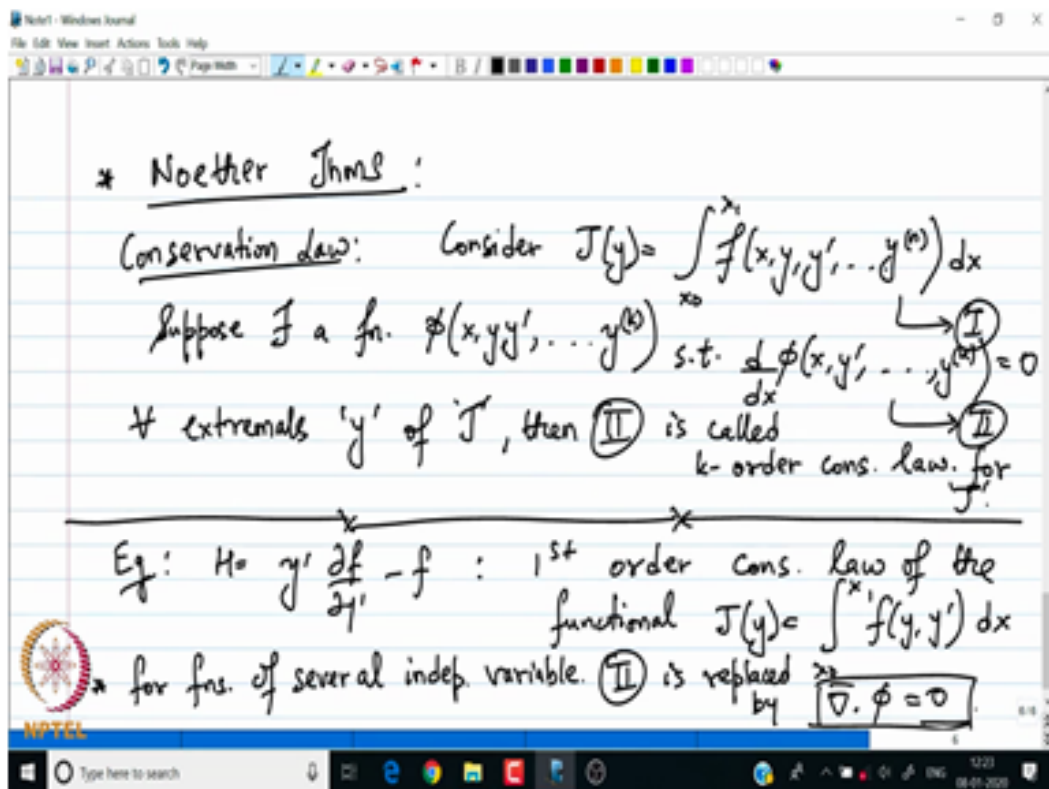 Note1 - Windows Journal
File Edit View Insert Actions Tools Help
Page Width
B I
* Noether Thms :
Conservation Law: Consider J(y) = ∫_{x₀}^{x₁} f(x, y, y', ... y^{(n)}) dx
→ Ⓘ
Suppose ∃ a fn. φ(x, y y', ... y^{(k)}) s.t. d/dx φ(x, y', ..., y^{(k)}) = 0
→ II
∀ extremals 'y' of 'J', then II is called
k-order cons. law. for
'J'.
Eg: H = y' ∂f/∂y' - f : 1st order cons. law of the
functional J(y) = ∫_{x₀}^{x₁} f(y, y') dx
* for fns. of several indep. variable. II is replaced
by ∇. φ = 0
NPTEL
6
Type here to search
ENG
12:23
08-01-2020